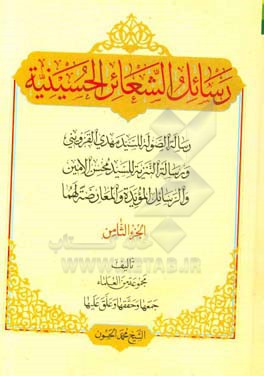 رسائل الشعائر الحسينية
رسالة الصولة للسيد مهدي القزويني
ورسالة التنزيه للسيد محسن الأمين
والرسائل المؤيدة والمعارضة لهما
الجزء الثامن
تأليف
مجموعة من العلماء
جمعها وحققها وعلق عليها
الشيخ محمد الحسون